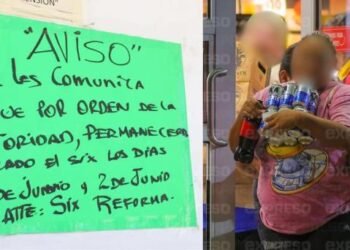 ENSION
"AVISO"
Les Comunica
UE POR ORDEN DE LA
TORIDAD, PERMANECERA
RADO EL SIX LOS DIAS
DE JUNIO Y 2 DE JUNIO
ATTE: SIX REFORMA.
EXPRESO